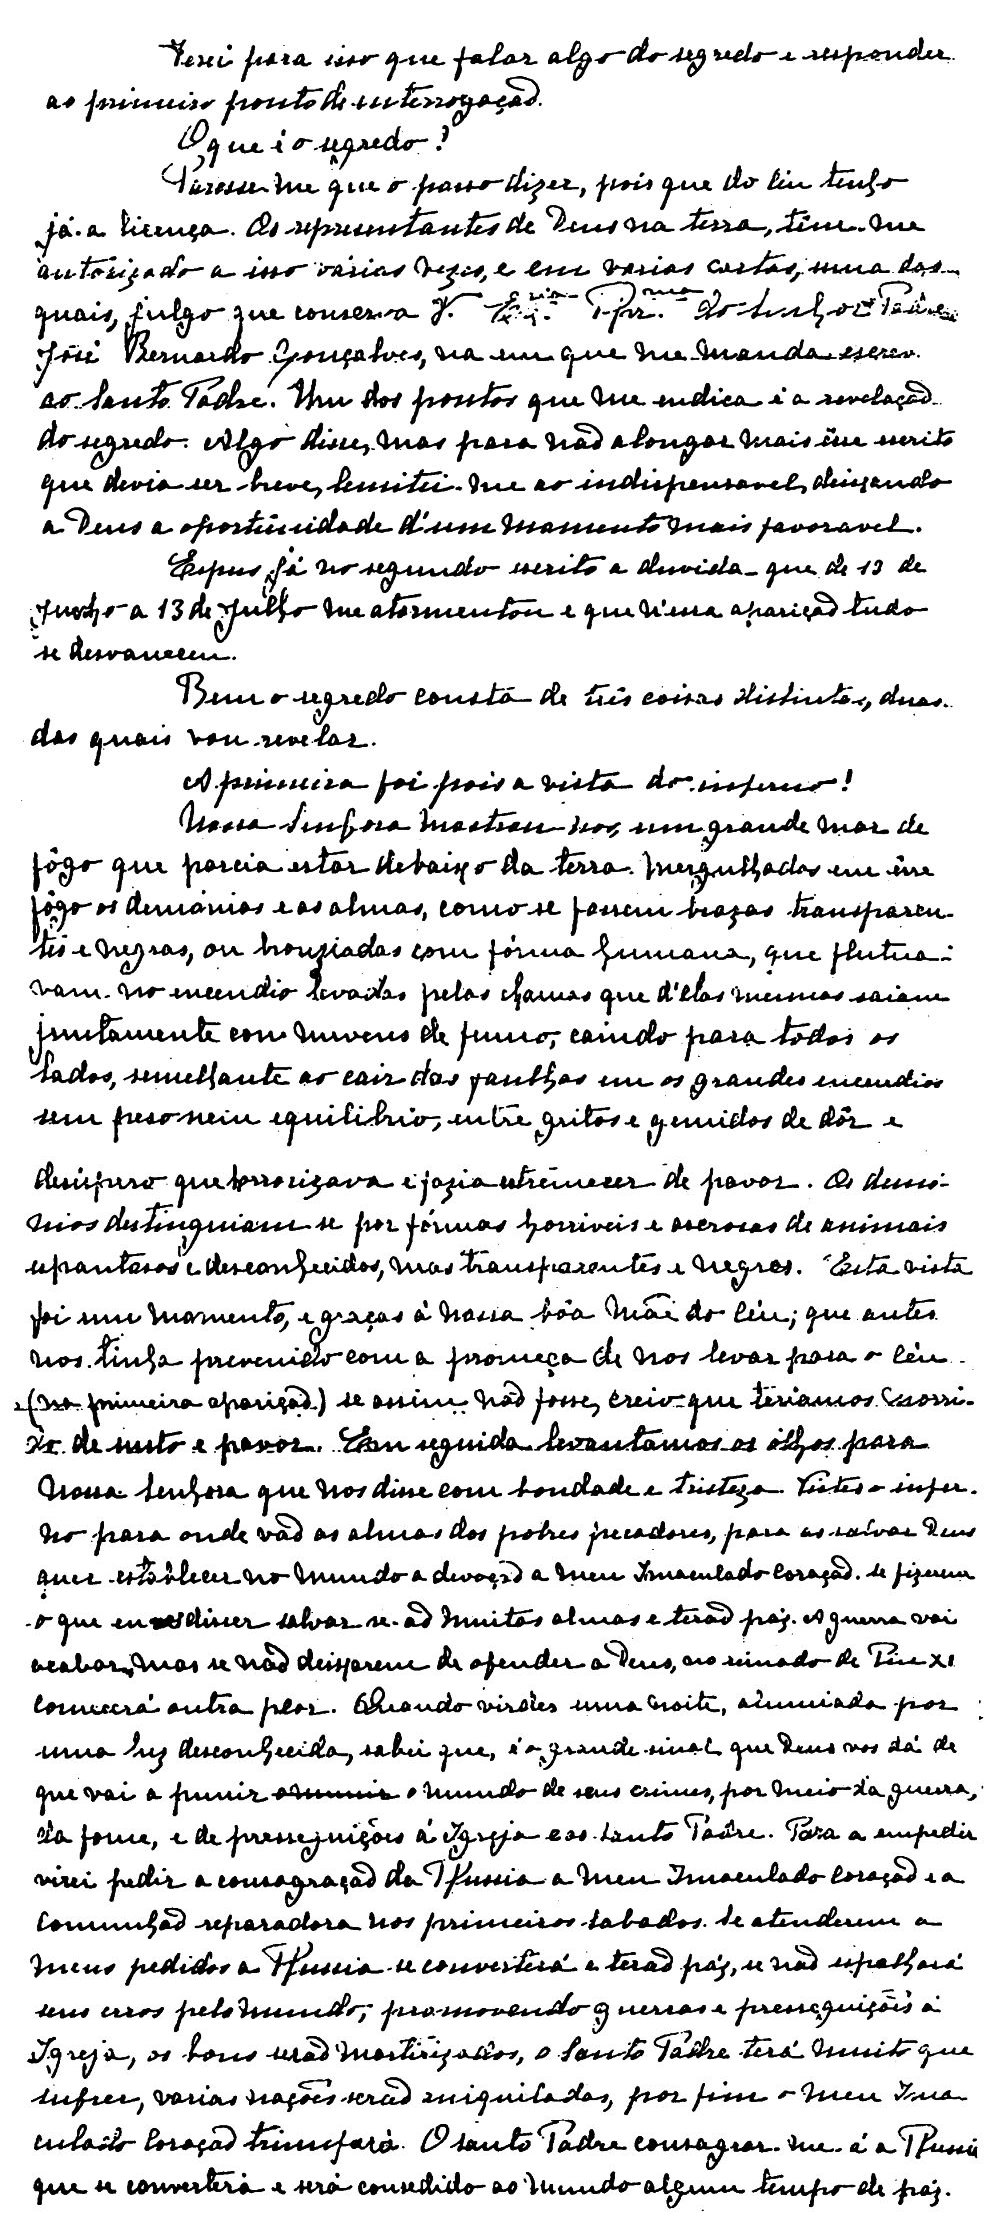 Terei para isso que falar algo do segredo e responder
ao primeiro ponto de interrogação.
O que é o segredo?
Paresse-me que o posso dizer, pois que do Céu tenho
já a licença. Os representantes de Deus na terra, têm-me
autorizado a isso varias vezes, e em varias cartas, uma das
quais, julgo que conserva V. Ex.cia Rev.ma do Senhor Padre
José Bernardo Gonçalves, na em que me manda escrev.
ao Santo Padre. Um dos pontos que me indica é a revelação
do segredo. Algo disse, mas para não alongar mais êsse escrito
que devia ser breve, lemitei-me ao indispensavel, deixando
a Deus a oportunidade d'um momento mais favoravel.
Expus já no segundo escrito a duvida que de 13 de
Junho a 13 de Julho me atormentou e que n'essa aparição tudo
se desvaneceu.
Bem o segredo consta de três coisas distintas, duas
das quais vou revelar.
A primeira foi pois a vista do inferno!
Nossa Senhora mostrou-nos um grande mar de
fôgo que parcia estar debaixo da terra. Mergulhados em êsse
fôgo os demónios e as almas, como se fossem brazas transparen-
tes e negras, ou bronziadas com fórma humana, que flutua-
vam no encendio levadas pelas chamas que d'elas mesmas saiam
juntamente com nuvens de fumo, caindo para todos os
lados, semelhante ao cair das faulhas em os grandes encendios
sem peso nem equilibrio, entre gritos e gemidos de dôr e
desespero que horrorizava e fazia estremecer de pavor. Os demó-
nios destinguiam-se por fórmas horriveis e ascrosas de animais
espantosos e desconhecidos, mas transparentes e negros. Esta vista
foi um momento, e graças á nossa bôa Mãe do Céu; que antes
nos tinha prevenido com a promeça de nos levar para o Céu
(na primeira aparição) se assim não fosse, creio que teriamos morri-
do de susto e pavor. Em seguida, levantamos os olhos para
Nossa Senhora que nos disse com bondade e tristeza. Vistes o infer-
no para onde vão as almas dos pobres pecadores, para as salvar Deus
quer establecer no mundo a devoção a meu Imaculado Coração. Se fizerem
o que eu disser salvar-se-ão muitas almas e terão paz. A guerra vai
acabar, mas se não deixarem de ofender a Deus, no reinado de Pio XI
começerá outra peor. Quando virdes uma noite, alumiada por
uma luz desconhecida, sabei que, é o grande sinal que Deus vos dá de
que vai a punir o mundo de seus crimes, por meio da guerra,
da fome, e de persseguições á Igreja e ao Santo Padre. Para a empedir
virei pedir a consagração da Russia a meu Imaculado Coração e a
Comunhão reparadora nos primeiros sabados. Se atenderem a
meus pedidos a Russia se converterá e terão paz, se não espalhará
seus erros pelo mundo, promovendo guerras e persseguições á
Igreja, os bons serão martirizados, o Santo Padre terá muito que
sufrer, varias nações serão aniquiladas, por fim o meu Ima-
culado Coração triunfará. O Santo Padre consagrar-me-á a Russia
que se converterá e será consedido ao mundo algum tempo de paz.